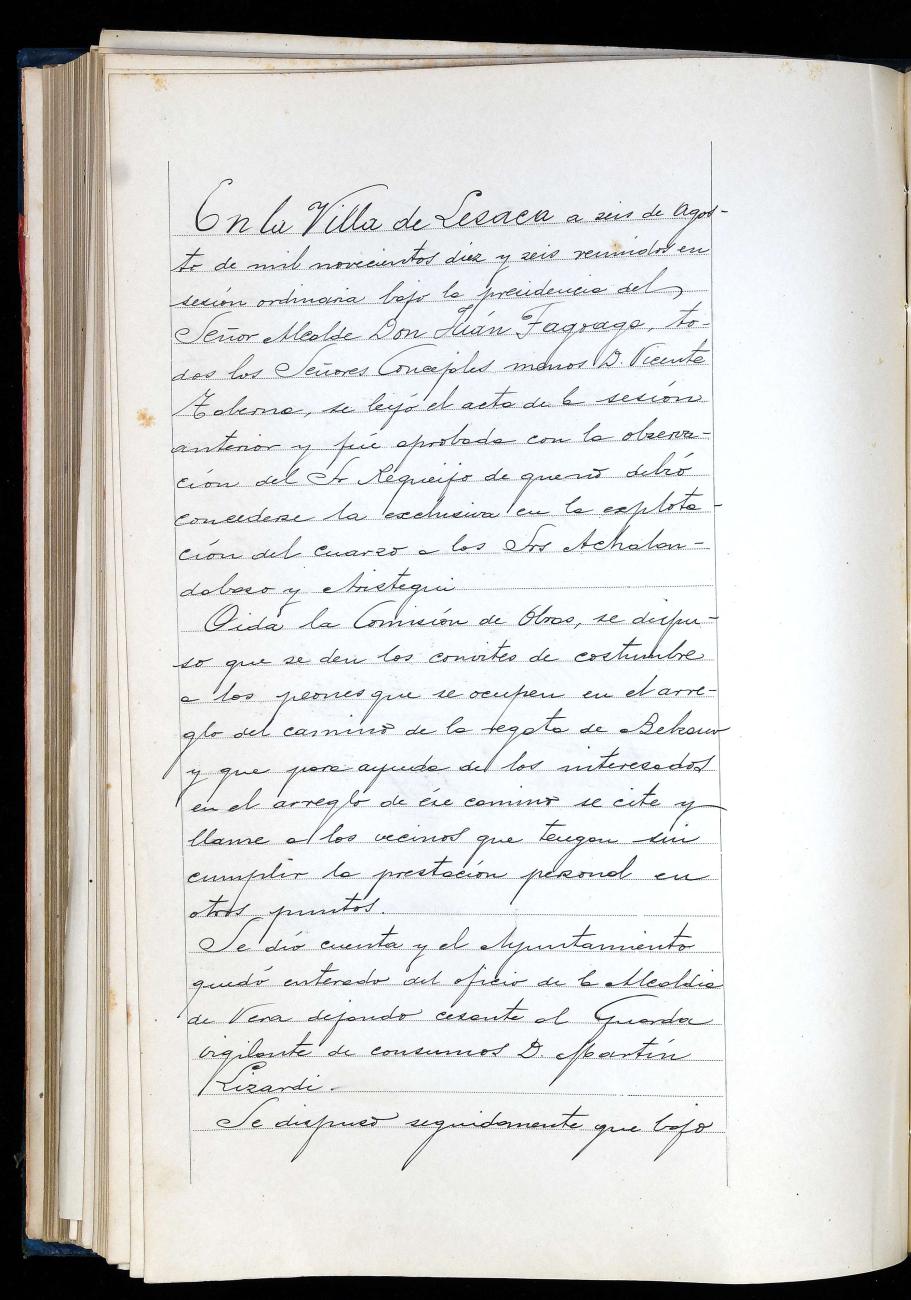 En la Villa de Lesaca a seis de Agos-
to de mil novecientos diez y seis reunidos en
sesión ordinaria bajo la presidencia del
Señor Alcalde Don Juán Fagoaga, to-
dos los Señores Concejales menos D. Vicente
Taberna, se leyó el acta de la sesión
anterior y fué aprobada con la observa-
ción del Sr Requeijo de que no debió
concederse la exclusiva en la explota-
ción del cuarzo a los Srs Achalan-
dabaso y Aristegui
Oida la Comisión de Obras, se dispu-
so que se den los convites de costumbre
a los peones que se ocupen en el arre-
glo del camino de la regata de
y que para ayuda de los interesados
en el arreglo de ese camino se cite y
llame a los vecinos que tengan sin
cumplir la prestación personal en
otros puntos.
Se dió cuenta y el Ayuntamiento
quedó enterado del oficio de la Alcaldia
de Vera dejando cesante al Guarda
vigilante de consumos D. Martín
Lizardi.
Se dispuso seguidamente que bajo